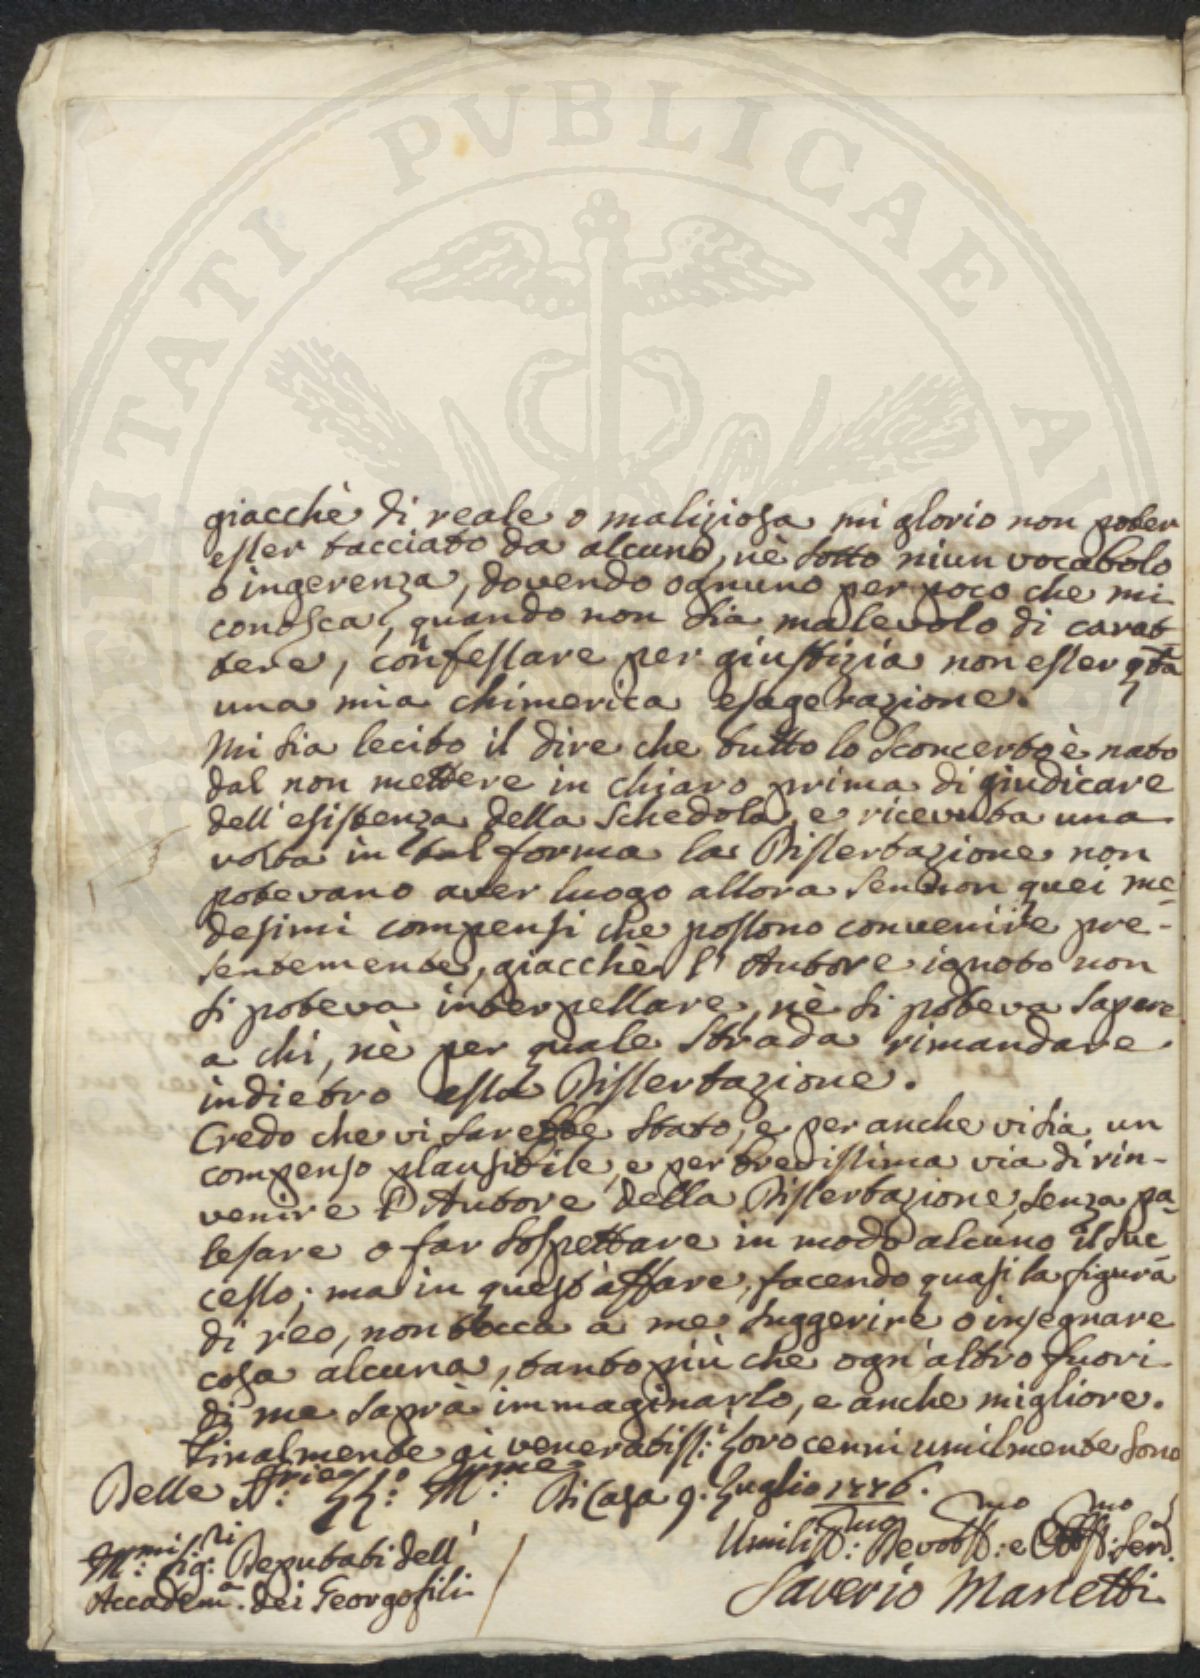 PROSPERITATI PVBLICAE AVGENDAE
giacchè di reale o maliziosa mi glorio non poter
esser tacciato da alcuno, nè sotto niun vocabolo
o ingerenza, dovendo ognuno per poco che mi
conosca, quando non sia malevolo di carat
tere, confessare per giustizia non esser q.ta
una mia chimerica esagerazione.
Mi sia lecito il dire che tutto lo sconcerto è nato
dal non mettere in chiaro prima di giudicare
dell'esistenza della Schedola, e ricevuta una
volta in tal forma la Dissertazione non
potevano aver luogo allora sennon quei me-
desimi compensi che possono convenire pre-
sentemente, giacchè l'Autore ignoto non
si poteva interpellare, nè si poteva sapere
a chi, nè per quale strada rimandare
indietro essa Dissertazione.
Credo che vi sarebbe stato, e per anche vi sia un
compenso plausibile, e per brevissima via di rin-
venire l'Autore della Dissertazione, senza pa-
lesare o far sospettare in modo alcuno il suc-
cesso; ma in quest'affare, facendo quasi la figura
di reo, non tocca a me suggerire o insegnare
cosa alcuna, tanto più che ogn'altro fuori
di me saprà immaginarlo, e anche migliore.
Finalmente ai veneratiss:i Loro cenni umilmente sono
Delle
Di Casa 9. Luglio 1776.
Umiliss:mo Devotiss:mo e Obb:mo Ser.
Sig:ri Deputati dell'
Accadem.a dei Georgofili
Saverio Manetti